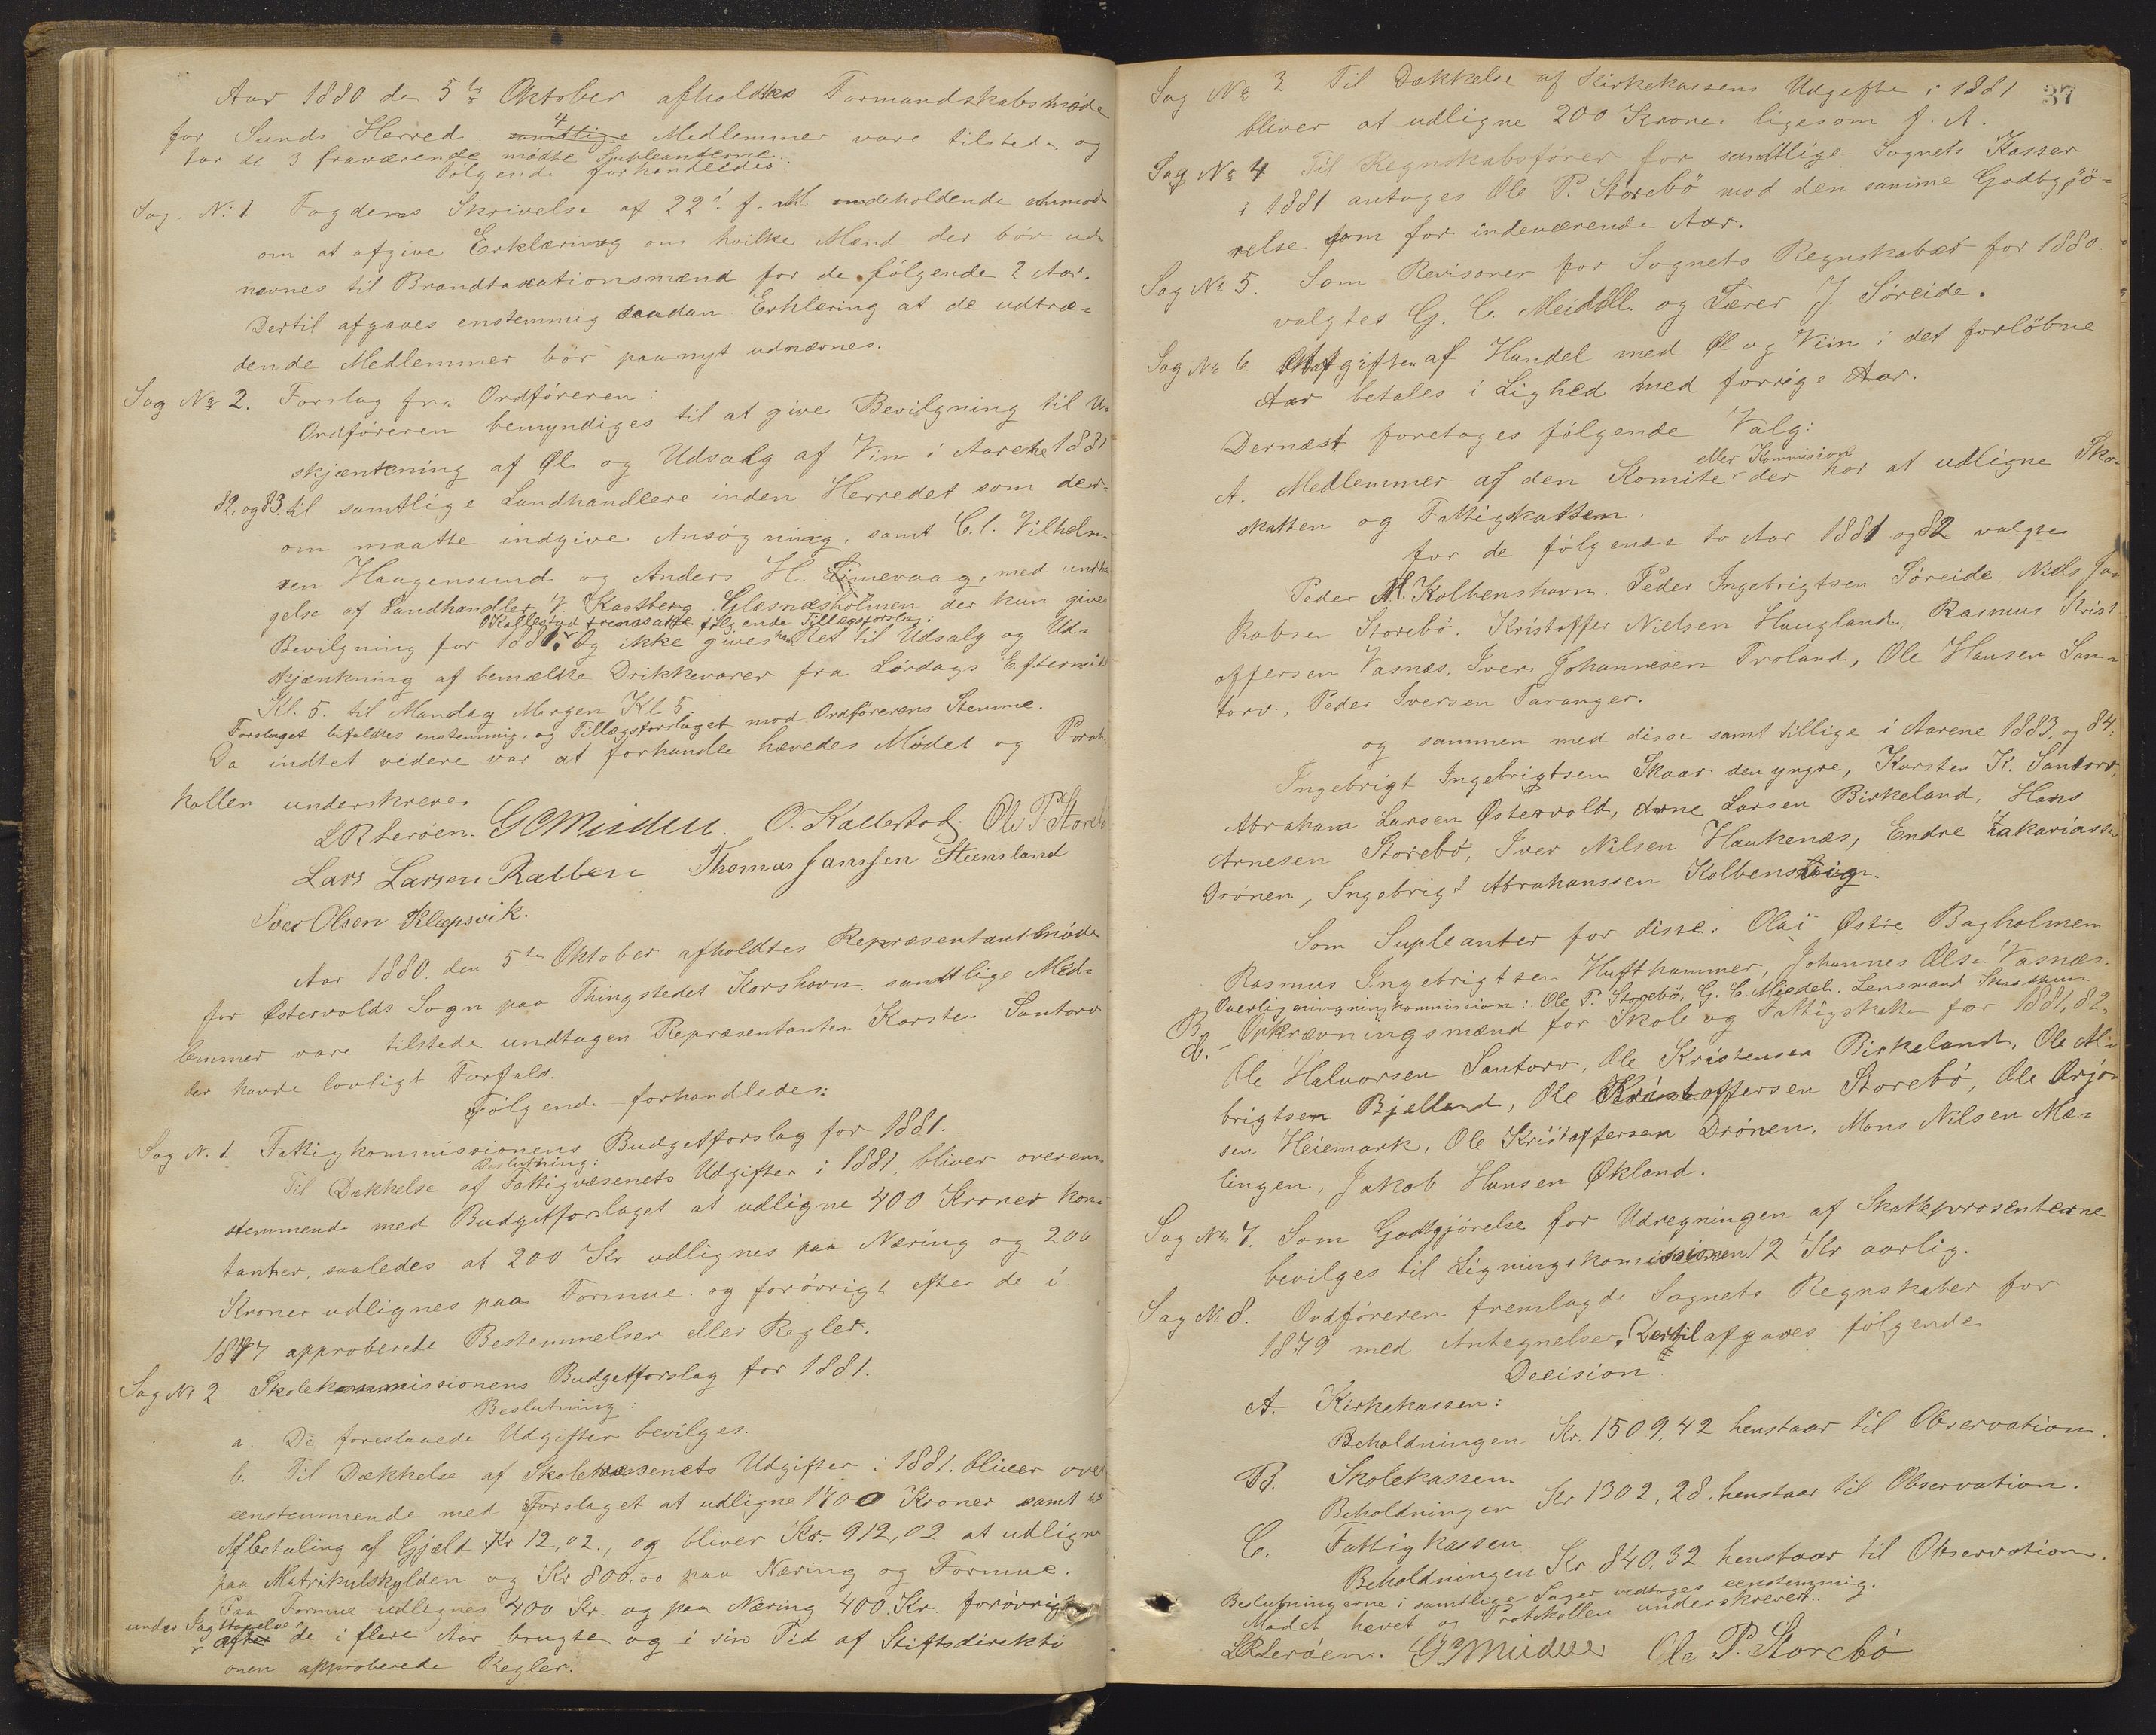 Aar 1880 den 5te Oktober afholdtes Formandskabsmøde
for Sunds Herred 4 samtlige Medlemmer vare tilstede og
for de 3 fraværende mødte Supleanterne.
Følgende forhandledes:
Sag. No: 1 Fogdens Skrivelse af 22' f. M. indeholdende anmod
om at afgive Erklæring om hvilke Mænd der bör ud
nævnes til Brandtaxationsmænd for de følgende 2 Aar.
Dertil afgaves enstemmig saadan Erklæring at de udtræ-
dende Medlemmer bör paanyt udnævnes.
Sag No 2. Forslag fra Ordføreren:
Ordføreren bemyndiges til at give Bevilgning til U-
skjænkning af Øl og Udsalg af Vin i Aarene 1881
82, og 83. til samtlige Landhandlere inden Herredet som der-
om maatte indgive Ansøgning, samt C. C. Vilhelm-
sen Haagensund og Anders H. Limevaag, med undta
gelse af Landhandler V. Kastberg Glæsnæsholmen der kun gives
O Kallestad fremsatte følgende Tillægsforslag:
Bevilgning for 1881. Og ikke gives han Ret til Udsalg og Ud-
skjænkning af bemældte Drikkevarer fra Lørdags Eftermid
Kl. 5. til Mandag Morgen Kl. 5.
Forslaget bifaldtes enstemmig, og Tillægsforslaget mod Ordførerens Stemme.
Da indtet videre var at forhandle hævedes Mødet og Proto
kollen underskreves
L R Lerøen. G C Meidell. O. Kallestad. Ole P. Storebø
Lars Larsen Kalben Thomas Janssen Steensland
Iver Olsen Klepsvik.
Aar 1880. den 5te Oktober afholdtes Repræsentantmøde
for Østervolds Sogn paa Thingstedet Korshavn samtlige Med-
lemmer vare tilstede undtagen Repræsentanten Karsten Santorv
der havde lovligt Forfald.
Følgende forhandledes:
Sag N. 1. Fattigkommissionens Budgetforslag for 1881.
Beslutning:
Til Dækkelse af Fattigvæsenets Udgifter i 1881, bliver overens
stemmende med Budgetforslaget at udligne 400 Kroner kon-
tanter, saaledes at 200 Kr udlignes paa Næring og 200
Kroner udlignes paa Formue og forövrigt efter de i
1877 approberede Bestemmelser eller Regler.
Sag No 2 Skolekommissionens Budgetforslag for 1881.
Beslutning:
a. De foreslaaede Udgifter bevilges.
b. Til Dækkelse af Skolevæsenets Udgifter i 1881. bliver over
eenstemmende med Forslaget at udligne 1700 Kroner samt
Afbetaling af Gjæld Kr 12,02., og bliver Kr. 912,02 at udligne
paa Matrikulskylden og Kr 800,00 paa Næring og Formue.
Paa Formue udlignes 400 Kr. og paa Næring 400 Kr forövrigt
under Sag
efter de i flere Aar brugte og i sin Tid af Stiftsdirekti
onen approberede Regler.
37
Sag No 3 Til Dækkelse af Kirkekassens Udgifter i 1881
bliver at udligne 200 Kroner ligesom f. A.
Sag No 4 Til Regnskabsfører for samtlige Sognets Kasser
i 1881 antages Ole P. Storebö mod den samme Godtgjö-
relse som for indeværende Aar.
Sag No 5. Som Revisorer for Sognets Regnskaber for 1880.
valgtes G. C. Meidell og Lærer J. Søreide.
Sag No 6. Afgiften af Handel med Øl og Viin i det forløbne
Aar betales i Lighed med forrige Aar.
Dernæst foretages følgende Valg:
eller Kommission
A. Medlemmer af den Komite der har at udligne Skole-
skatten og Fattigskatten.
for de følgende to Aar 1881 og 82 valgtes
Peder M. Kolbenshavn. Peder Ingebrigtsen Søreide, Niels Ja-
kobsen Storebö. Kristoffer Nielsen Haugland, Rasmus Krist
offersen Vasnæs, Ivers Johannesen Troland, Ole Hansen San-
torv, Peder Iversen Taranger.
og sammen med disse samt tillige i Aarene 1883, og 84.
Ingebrigt Ingebrigtsen Skaar den yngre, Karsten K. Santorv,
Abraham Larsen Østervold, Arne Larsen Birkeland, Hans
Arnesen Storebö, Iver Nilsen Haukenæs, Endre Zakariassen
Drönen, Ingebrigt Abrahamssen Kolbensvig.
Som Supleanter for disse: Olai Østre Bagholmen
Rasmus Ingebrigtsen Hufthammer, Johannes Olsen Vasnæs.
B Overligningningskommission: Ole P. Storebö, G. C. Miedel. Lensmand Skaathun
C. Opkrævningsmænd for Skole og Fattigskatten for 1881, 82.
Ole Halvorsen Santorv, Ole Kristensen Birkeland, Ole
brigtsen Bjælland, Ole Kristoffersen Storebö, Ole Ørjan
sen Heiemark, Ole Kristoffersen Drönen, Mons Nilsen Mø-
lingen, Jakob Hansen Økland.
Sag No 7. Som Godtgjörelse for Udregningen af Skatteprosenterne
bevilges til Ligningskomissionen 12 Kr aarlig.
Sag No 8. Ordføreren fremlagde Sognets Regnskaber for
1879 med Antegnelser. Dertil afgaves følgende
Decision
A. Kirkekassen:
Beholdningen Kr. 1509,42 henstaar til Observation.
B. Skolekassen
Beholdningen Kr 1302,28. henstaar til Observation.
C. Fattigkassen.
Beholdningen Kr 840.32. henstaar til Observation.
Beslutningerne i samtlige Sager vedtoges eenstemmig.
Mødet hævet og Protokollen underskrevet.
L R Lerøen. G C Meidell Ole P. Storebö